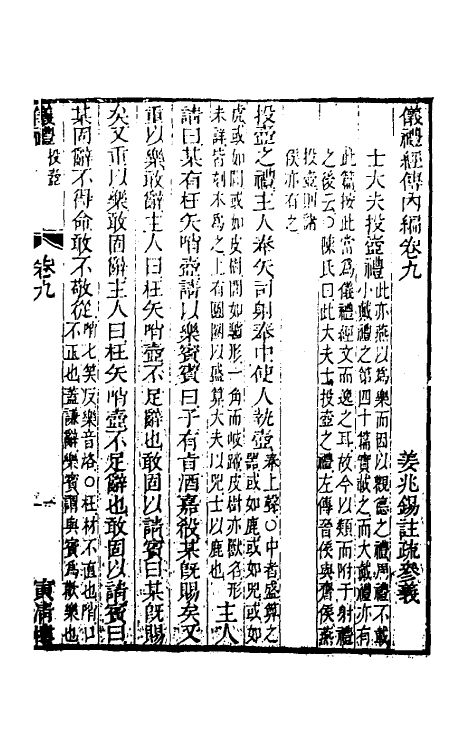 儀禮經傳內編卷九
姜兆錫註疏參義
士大夫投壺禮
此亦燕以為樂而因以觀德之禮周禮不載
小戴禮之第四十篇實載之而大戴禮亦有
此篇按此當為儀禮經文而逸之耳故今以類而附于射禮
之後云○陳氏曰此大夫士投壺之禮左傳晉侯與齊侯燕
投壺則諸
侯亦有之
投壺之禮主人奉矢司射奉中使人執壺
奉上聲○中者盛算之
器或如鹿或如兕或如
虎或如閭或如皮樹閭如驢形一角而岐蹄皮樹亦獸名形
未詳皆刻木為之上有圓圈以盛算大夫以兕士以鹿也
主人
請曰某有枉矢哨壺請以樂賓賓曰子有旨酒嘉殽某既賜矣又
重以樂敢辭主人曰枉矢哨壺不足辭也敢固以請賓曰某既賜
矣又重以樂敢固辭主人曰枉矢哨壺不足辭也敢固以請賓曰
某固辭不得命敢不敬從
哨七笑反樂音洛○枉材不直也哨口
不正也蓋謙辭樂賓謂與賓為歡樂也
儀禮
投壺
卷九
一
寅清樓